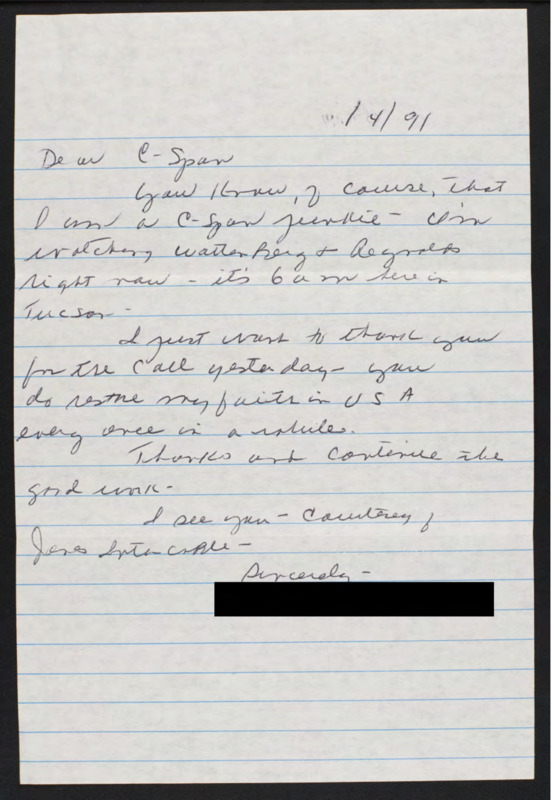 1/4/91
Dear C-Span
You know, of course, that
I am a C-Span junkie - I'm
watching Wattenberg + Reynolds
right now - it's 6 am here in
Tucson -
I just want to thank you
for the call yesterday - you
do restore my faith in USA
every once in a while.
Thanks and continue the
good work -
I see you - Courtesy of
Jones Intercable -
Sincerely -